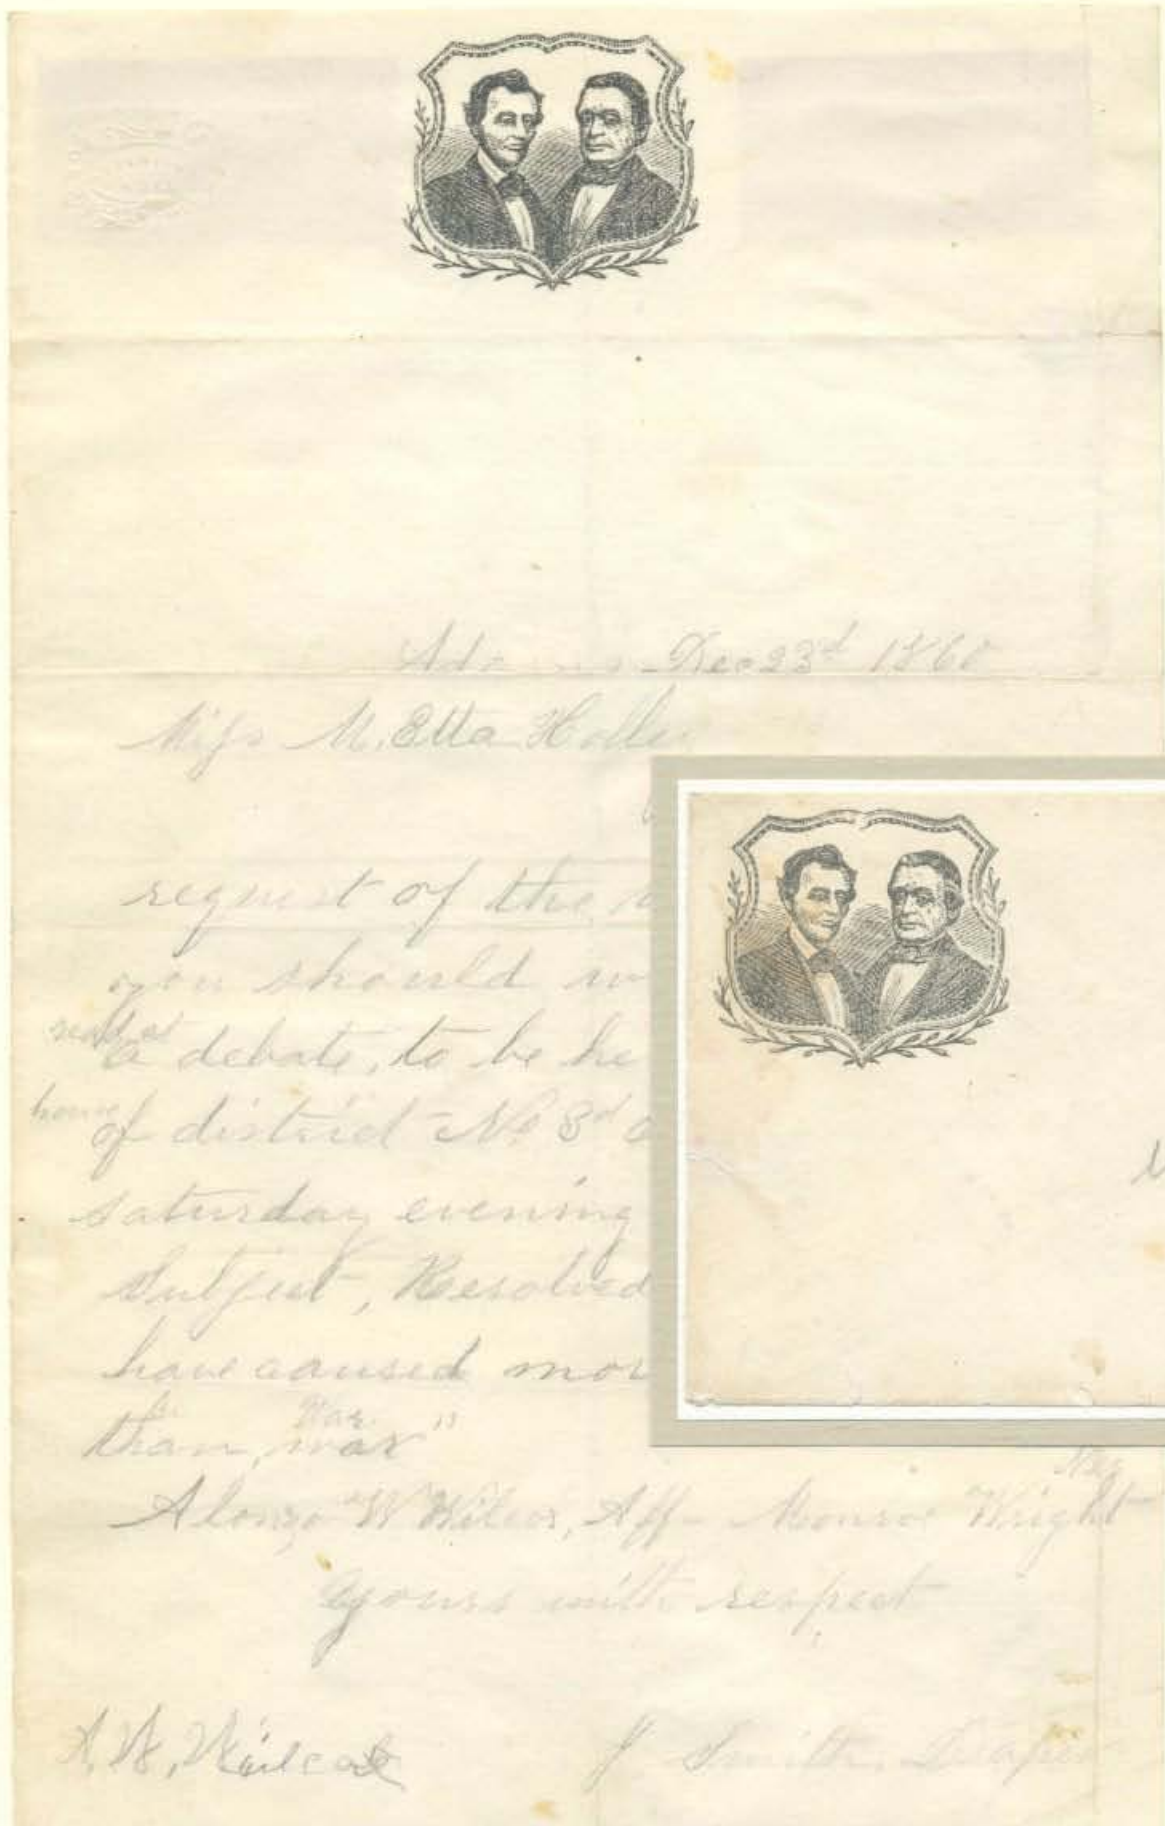 Dec 23d 1860
Miss M. Etta
request of the
you should
a debate, to be he
house
of district No 3d
saturday evening
Subject, Resolved
have caused mor
War
than, war"
Neg
Alonzo W Wilcox, Aff - Monroe Wright
yours with respect
A. W. Wilcox
J Smith,